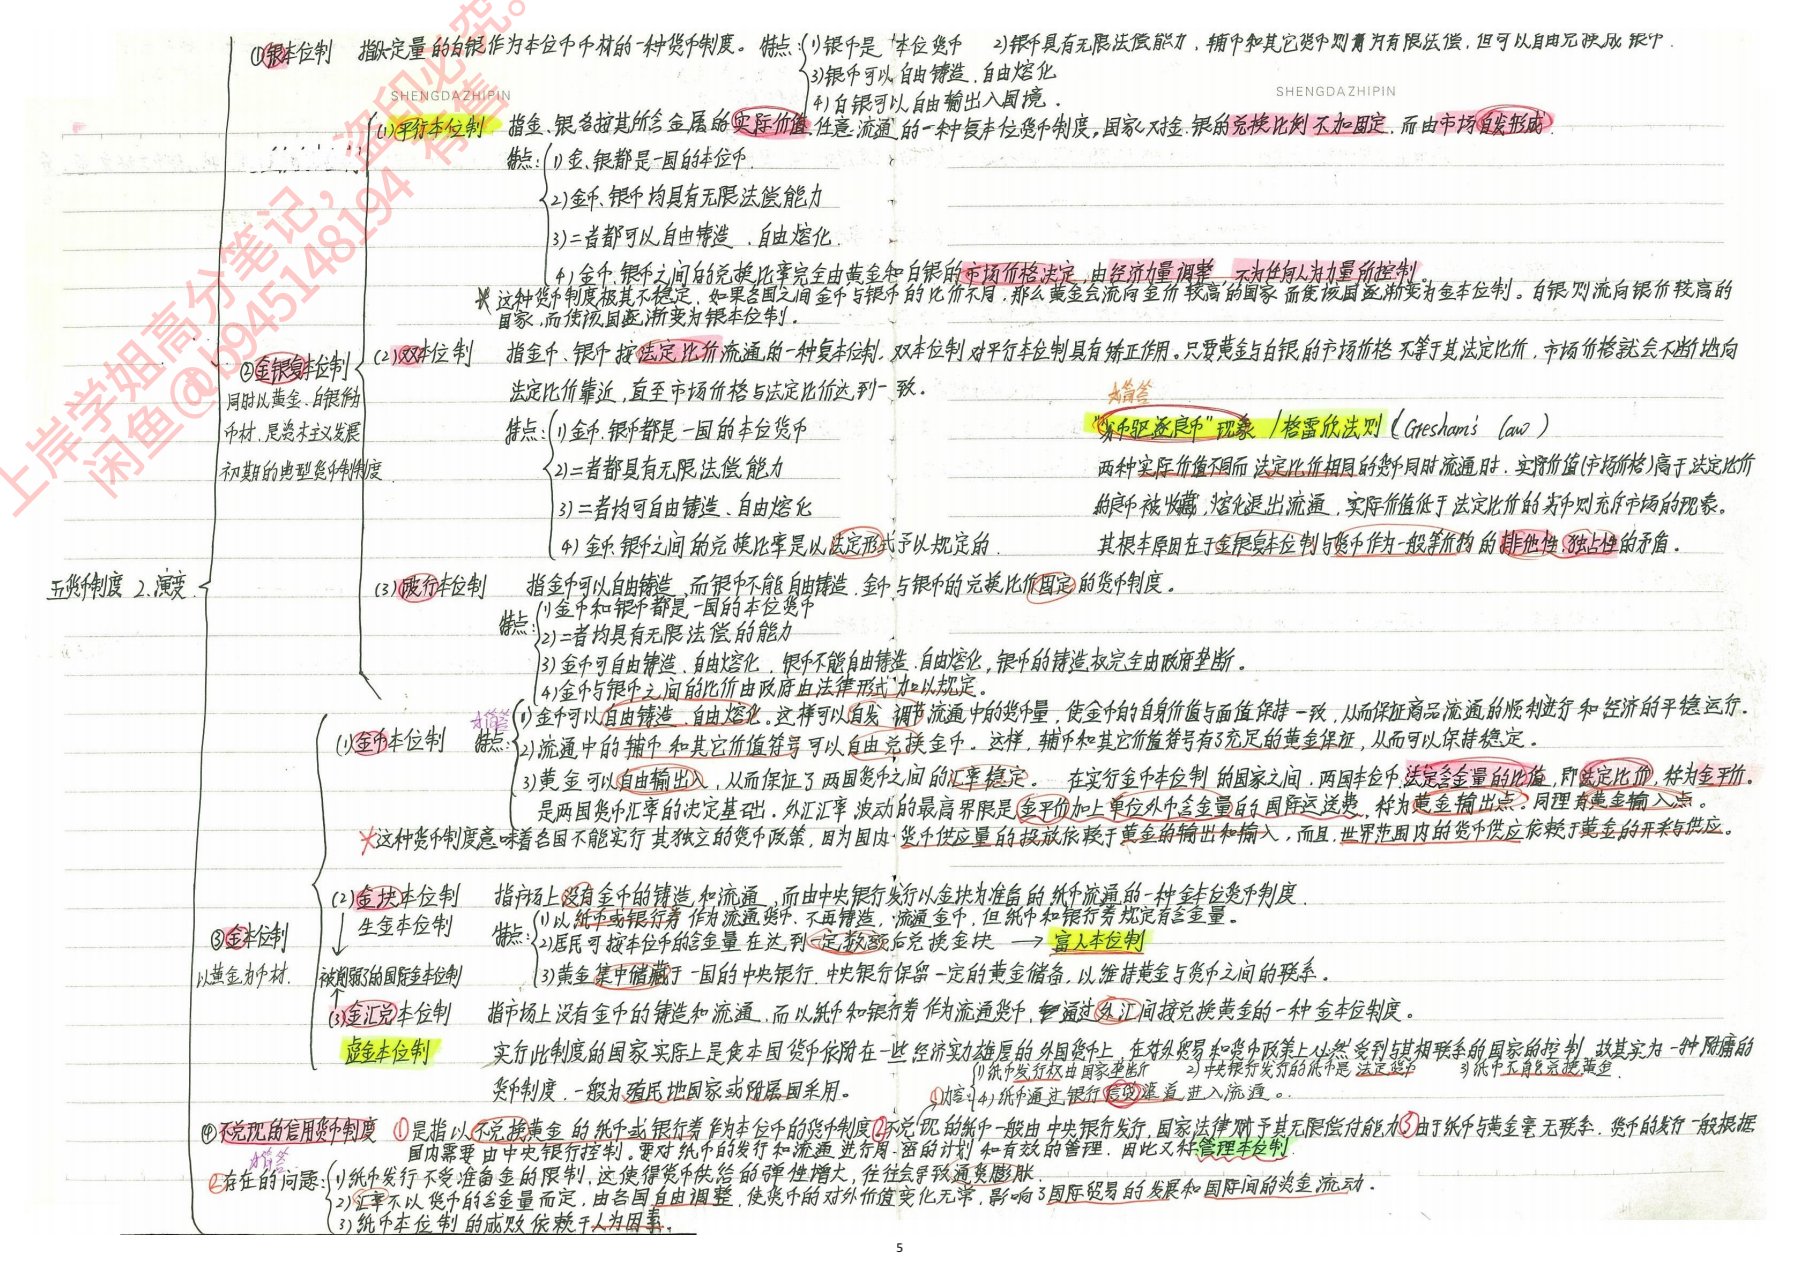 ①银本位制 指以一定量的白银作为本位币币材的一种货币制度。特点：1)银币是一本位货币 2)银币具有无限法偿能力，辅币和其它货币则需为有限法偿，但可以自由兑换成银币.
3)银币可以自由铸造、自由熔化
4)白银可以自由输出入国境.
SHENGDAZHIPIN
SHENGDAZHIPIN
(1)平行本位制 指金、银各按其所含金属的实际价值任意流通的一种复本位货币制度。国家对金、银的兑换比例不加固定，而由市场自发形成.
特点：1)金、银都是一国的本位币.
2)金币、银币均具有无限法偿能力
3)二者都可以自由铸造、自由熔化.
4)金币、银币之间的兑换比率完全由黄金和白银的市场价格决定，由经济力量调整，不为任何人为力量所控制.
*这种货币制度极其不稳定，如果各国之间金币与银币的比价不同，那么黄金会流向金价较高的国家而使该国逐渐变为金本位制。白银则流向银价较高的
国家，而使该国逐渐变为银本位制.
②金银复本位制
同时以黄金、白银作为
币材，是资本主义发展
初期的典型货币制度
(2)双本位制 指金币、银币按法定比价流通的一种复本位制.双本位制对平行本位制具有矫正作用。只要黄金与白银的市场价格不等于其法定比价，市场价格就会不断地向
法定比价靠近，直至市场价格与法定比价达到一致。
特点：1)金币、银币都是一国的本位货币
2)二者都具有无限法偿能力
3)二者均可自由铸造、自由熔化
4)金币、银币之间的兑换比率是以法定形式予以规定的.
大简答
"劣币驱逐良币"现象/格雷欣法则(Gresham's Law)
两种实际价值不同而法定比价相同的货币同时流通时，实际价值(市场价格)高于法定比价
的良币被收藏，熔化退出流通，实际价值低于法定比价的劣币则充斥市场的现象。
其根本原因在于金银复本位制与货币作为一般等价物的排他性、独占性的矛盾。
五货币制度 2.演变
(3)跛行本位制 指金币可以自由铸造、而银币不能自由铸造，金币与银币的兑换比价固定的货币制度。
特点：1)金币和银币都是一国的本位货币
2)二者均具有无限法偿的能力
3)金币可自由铸造、自由熔化，银币不能自由铸造、自由熔化，银币的铸造权完全由政府垄断。
4)金币与银币之间的比价由政府由法律形式加以规定。
(1)金币本位制
大简答
特点：1)金币可以自由铸造、自由熔化。这样可以自发调节流通中的货币量，使金币的自身价值与面值保持一致，从而保证商品流通的顺利进行和经济的平稳运行。
2)流通中的辅币和其它价值符号可以自由兑换金币。这样，辅币和其它价值符号有了充足的黄金保证，从而可以保持稳定。
3)黄金可以自由输出入，从而保证了两国货币之间的汇率稳定。 在实行金币本位制的国家之间，两国本位币法定含金量的比值，即法定比价，称为金平价.
是两国货币汇率的决定基础，外汇汇率波动的最高界限是金平价加上单位外币含金量的国际运送费，称为黄金输出点。同理有黄金输入点。
*这种货币制度意味着各国不能实行其独立的货币政策，因为国内货币供应量的投放依赖于黄金的输出和输入，而且，世界范围内的货币供应依赖于黄金的开采与供应。
③金本位制
以黄金为币材.
(2)金块本位制 指市场上没有金币的铸造和流通，而由中央银行发行以金块为准备的纸币流通的一种金本位货币制度
生金本位制
特点：1)以纸币或银行券作为流通货币，不再铸造、流通金币，但纸币和银行券规定有含金量。
2)居民可按本位币的含金量在达到一定数额后兑换金块 → 富人本位制
3)黄金集中储藏于一国的中央银行，中央银行保留一定的黄金储备，以维持黄金与货币之间的联系。
被削弱了的国际金本位制
(3)金汇兑本位制 指市场上没有金币的铸造和流通，而以纸币和银行券作为流通货币，通过外汇间接兑换黄金的一种金本位制度。
虚金本位制 实行此制度的国家实际上是使本国货币依附在一些经济实力雄厚的外国货币上，在对外贸易和货币政策上必然受到与其相联系的国家的控制，故其实为一种附庸的
货币制度，一般为殖民地国家或附属国采用。
①内容：1)纸币发行权由国家垄断 2)中央银行发行的纸币是法定货币 3)纸币不能兑换黄金.
4)纸币通过银行信贷渠道进入流通。
④不兑现的信用货币制度 ①是指以不兑换黄金的纸币或银行券作为本位币的货币制度②不兑现的纸币一般由中央银行发行，国家法律赋予其无限偿付能力③由于纸币与黄金毫无联系，货币的发行一般根据
国内需要由中央银行控制。要对纸币的发行和流通进行周密的计划和有效的管理，因此又称管理本位制
大简答
②存在的问题：1)纸币发行不受准备金的限制，这使得货币供给的弹性增大，往往会导致通货膨胀.
2)汇率不以货币的含金量而定，由各国自由调整，使货币的对外价值变化无常，影响了国际贸易的发展和国际间的资金流动.
3)纸币本位制的成败依赖于人为因素。
上岸学姐高分笔记，盗印必究。
闲鱼@b945148194 有售
5